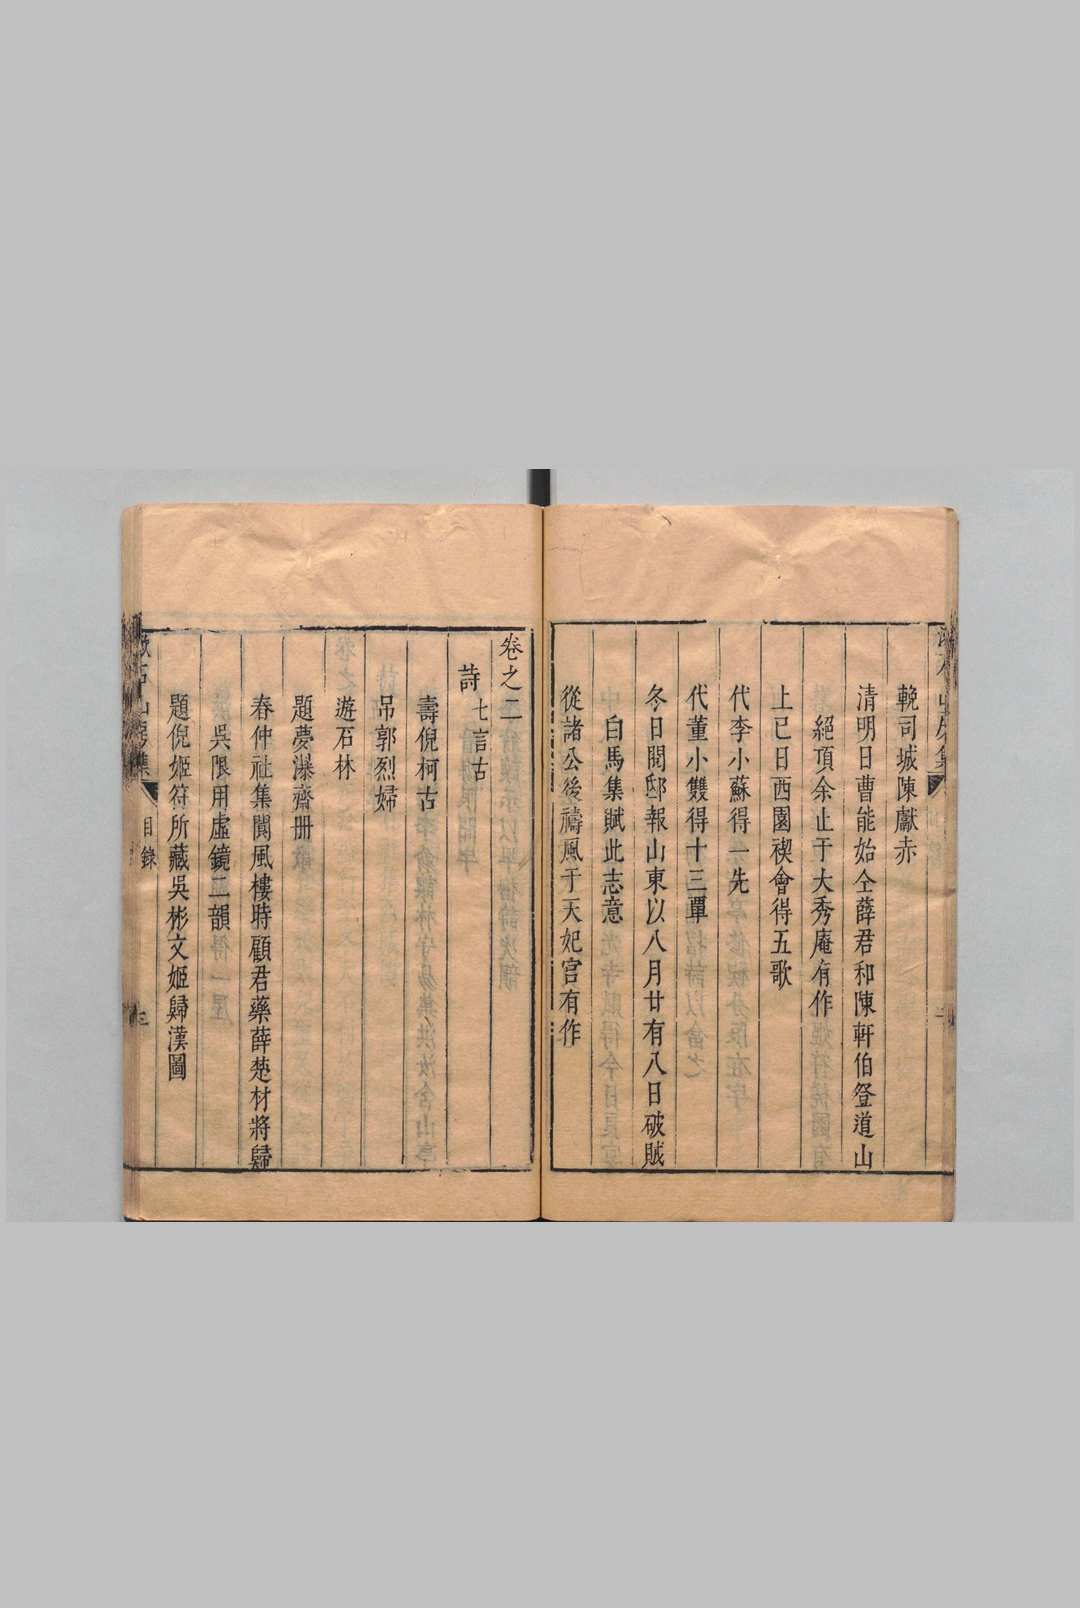 輓司城陳獻赤
清明日曹能始仝薛君和陳軒伯登道山
絕頂余止于大秀庵有作
上巳日西園禊會得五歌
代李小蘇得一先
代董小雙得十三覃
冬日閱邸報山東以八月廿有八日破賊
白馬集賦此志意
從諸公後禱風于天妃宮有作
卷之二
詩 七言古
壽倪柯古
吊郭烈婦
遊石林
題夢瀑齋册
春仲社集閬風樓時顧君藥薛楚材將歸
吳限用虛鏡二韻
題倪姬符所藏吳彬文姬歸漢圖
目錄
三